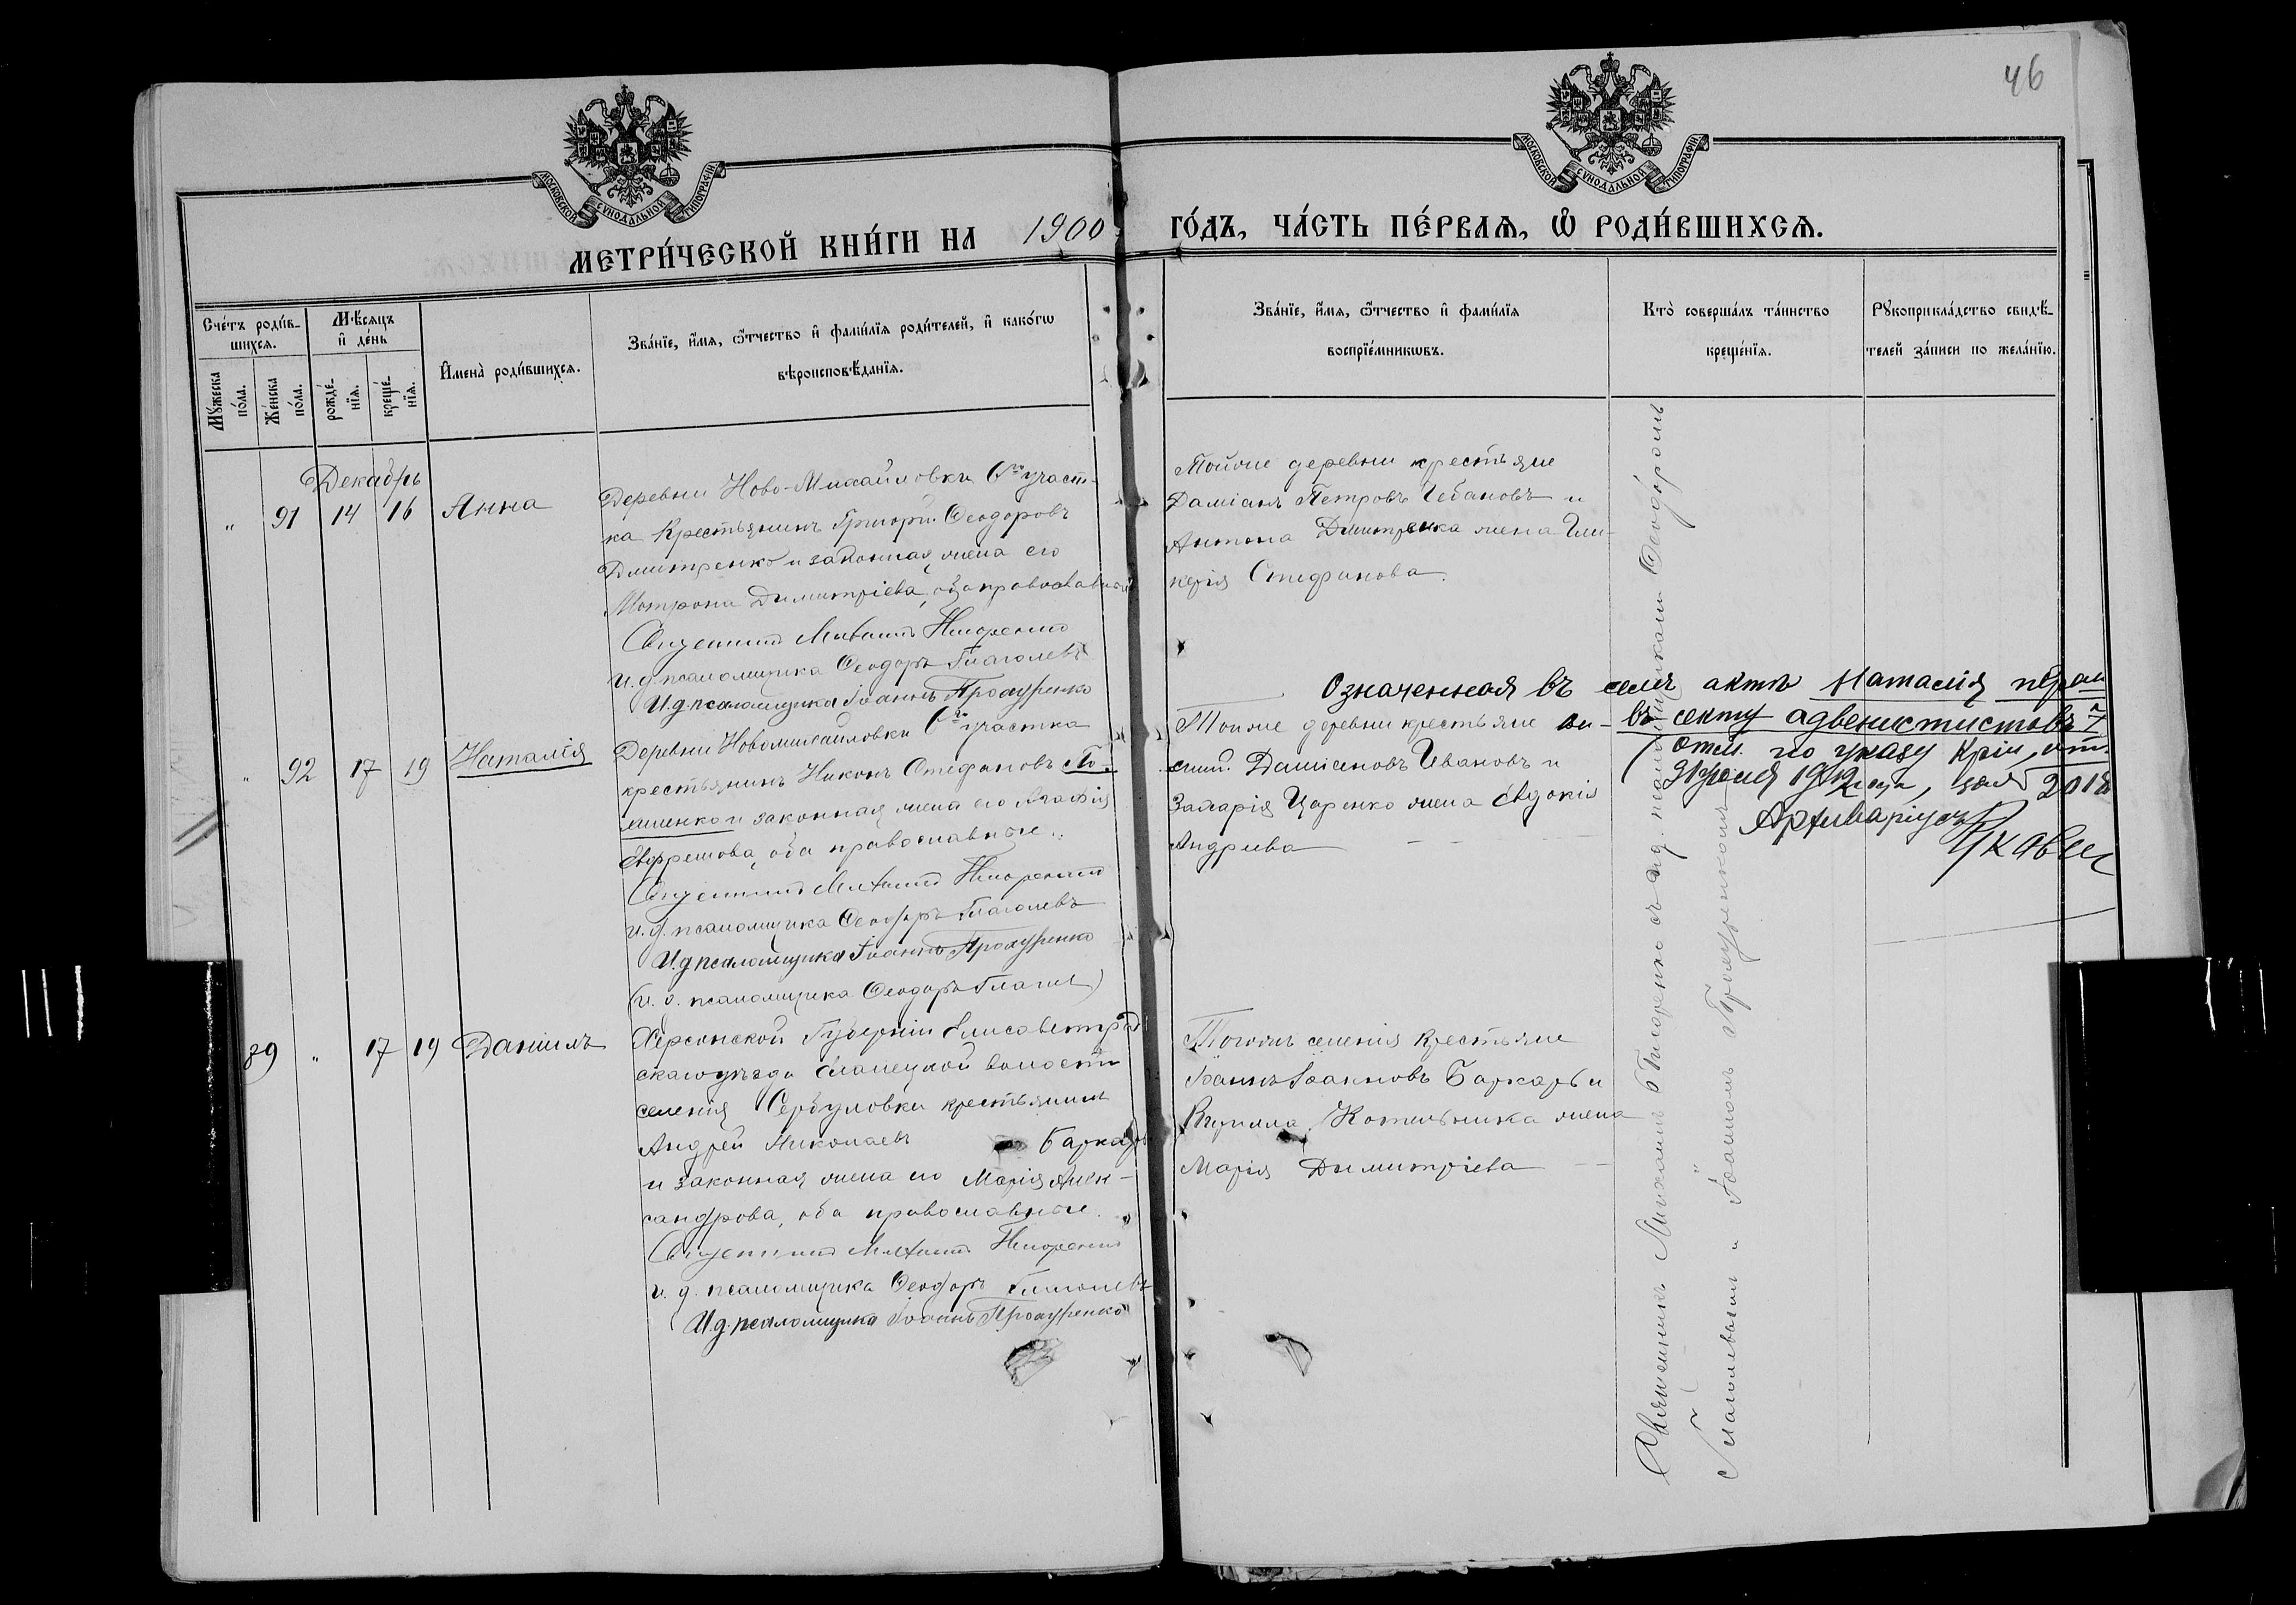 46
МОСКОВСКОЙ СѴНОДАЛЬНОЙ ТИПОГРАФІИ
МОСКОВСКОЙ СѴНОДАЛЬНОЙ ТИПОГРАФІИ
МЕТРИ́ЧЕСКОЙ КНИ́ГИ НА 1900 ГО́ДЪ, ЧА́СТЬ ПЕ́РВАѦ, Ѡ҆ РОДИ́ВШИХСѦ.
Сче́тъ роди́в-
шихсѧ.
Мꙋ́жеска по́ла.
Же́нска по́ла.
Мѣ́сѧцъ и҆ де́нь
рожде́-нїѧ.
креще́-нїѧ.
И҆мена̀ роди́вшихсѧ.
Зва́нїе, и҆́мѧ, ѻ҆́тчество и҆ фами́лїѧ роди́телей, и҆ како́гѡ
вѣроисповѣ́данїѧ.
Зва́нїе, и҆́мѧ, ѻ҆́тчество и҆ фами́лїѧ
воспрїе́мникѡвъ.
Кто̀ соверша́лъ та́инство
креще́нїѧ.
Рꙋкоприкла́дство свидѣ́-
телей за́писи по жела́нїю.
Декабрь
" 91 14 16 Анна
Деревни Ново-Михайловки 6го участ-
ка Крестьянинъ Григорій Ѳеодоровъ
Дмитренко и законная жена его
Матрона Димитріева, оба православные
Священникъ Михаилъ
И. д. псаломщика Ѳеодоръ Глаголевъ
И.д. псаломщика Іоаннъ Прокуренко
Тойже деревни крестьяне
Даміанъ Петровъ Чебановъ и
Антона Дмитренка жена Гли-
керія Стефанова.
" 92 17 19 Наталія
Деревни Новомихайловки 6го участка
крестьянинъ Никонъ Стефановъ
и законная жена его Агафія
Ефремова, оба православные.
Священникъ Михаилъ
и. д. псаломщика Ѳеодоръ Глаголевъ
И.д. псаломщика Іоаннъ Прокуренко
(и. д. псаломщика Ѳеодоръ Глагол)
Тойже деревни крестьяне
Даміановъ Ивановъ и
Захарія Царенко жена Евдокія
Андреева
Означенная въ семъ актѣ Наталія
въ секту адвентистовъ 7
по указу
1912 года, за № 2018
Архиваріусъ
89 " 17 19 Даніилъ
Херсонской Губерніи Елисаветград
скаго уѣзда Еланецкой волости
селенія Сербуловки крестьянинъ
Андрей Николаевъ Баркарь
и законная жена его Марія Алек-
сандрова, оба православные.
Священникъ Михаилъ
и. д. псаломщика Ѳеодоръ Глаголевъ
И.д. псаломщика Іоаннъ Прокуренко
Тогоже селенія крестьяне
Іоаннъ Іоанновъ Баркарь и
Кирилла Котельника жена
Марія Димитріева
Священникъ Михаилъ съ и.д. псаломщиками Ѳеодоромъ
Глаголевымъ и Іоанномъ Прокуренкомъ